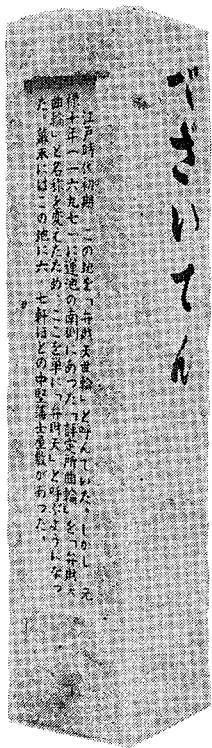 べざいてん
江戸時代初期、この地を「弁財天曲輪」と呼んでいた。しかし、元
禄十年(一六九七)に蓮池の南側にあった「評定所曲輪」を「弁財天
曲輪」と名称を変えたため、ここを単に「弁財天」と呼ぶようになっ
た。幕末にはこの地に六、七軒ほどの中堅藩士屋敷があった。